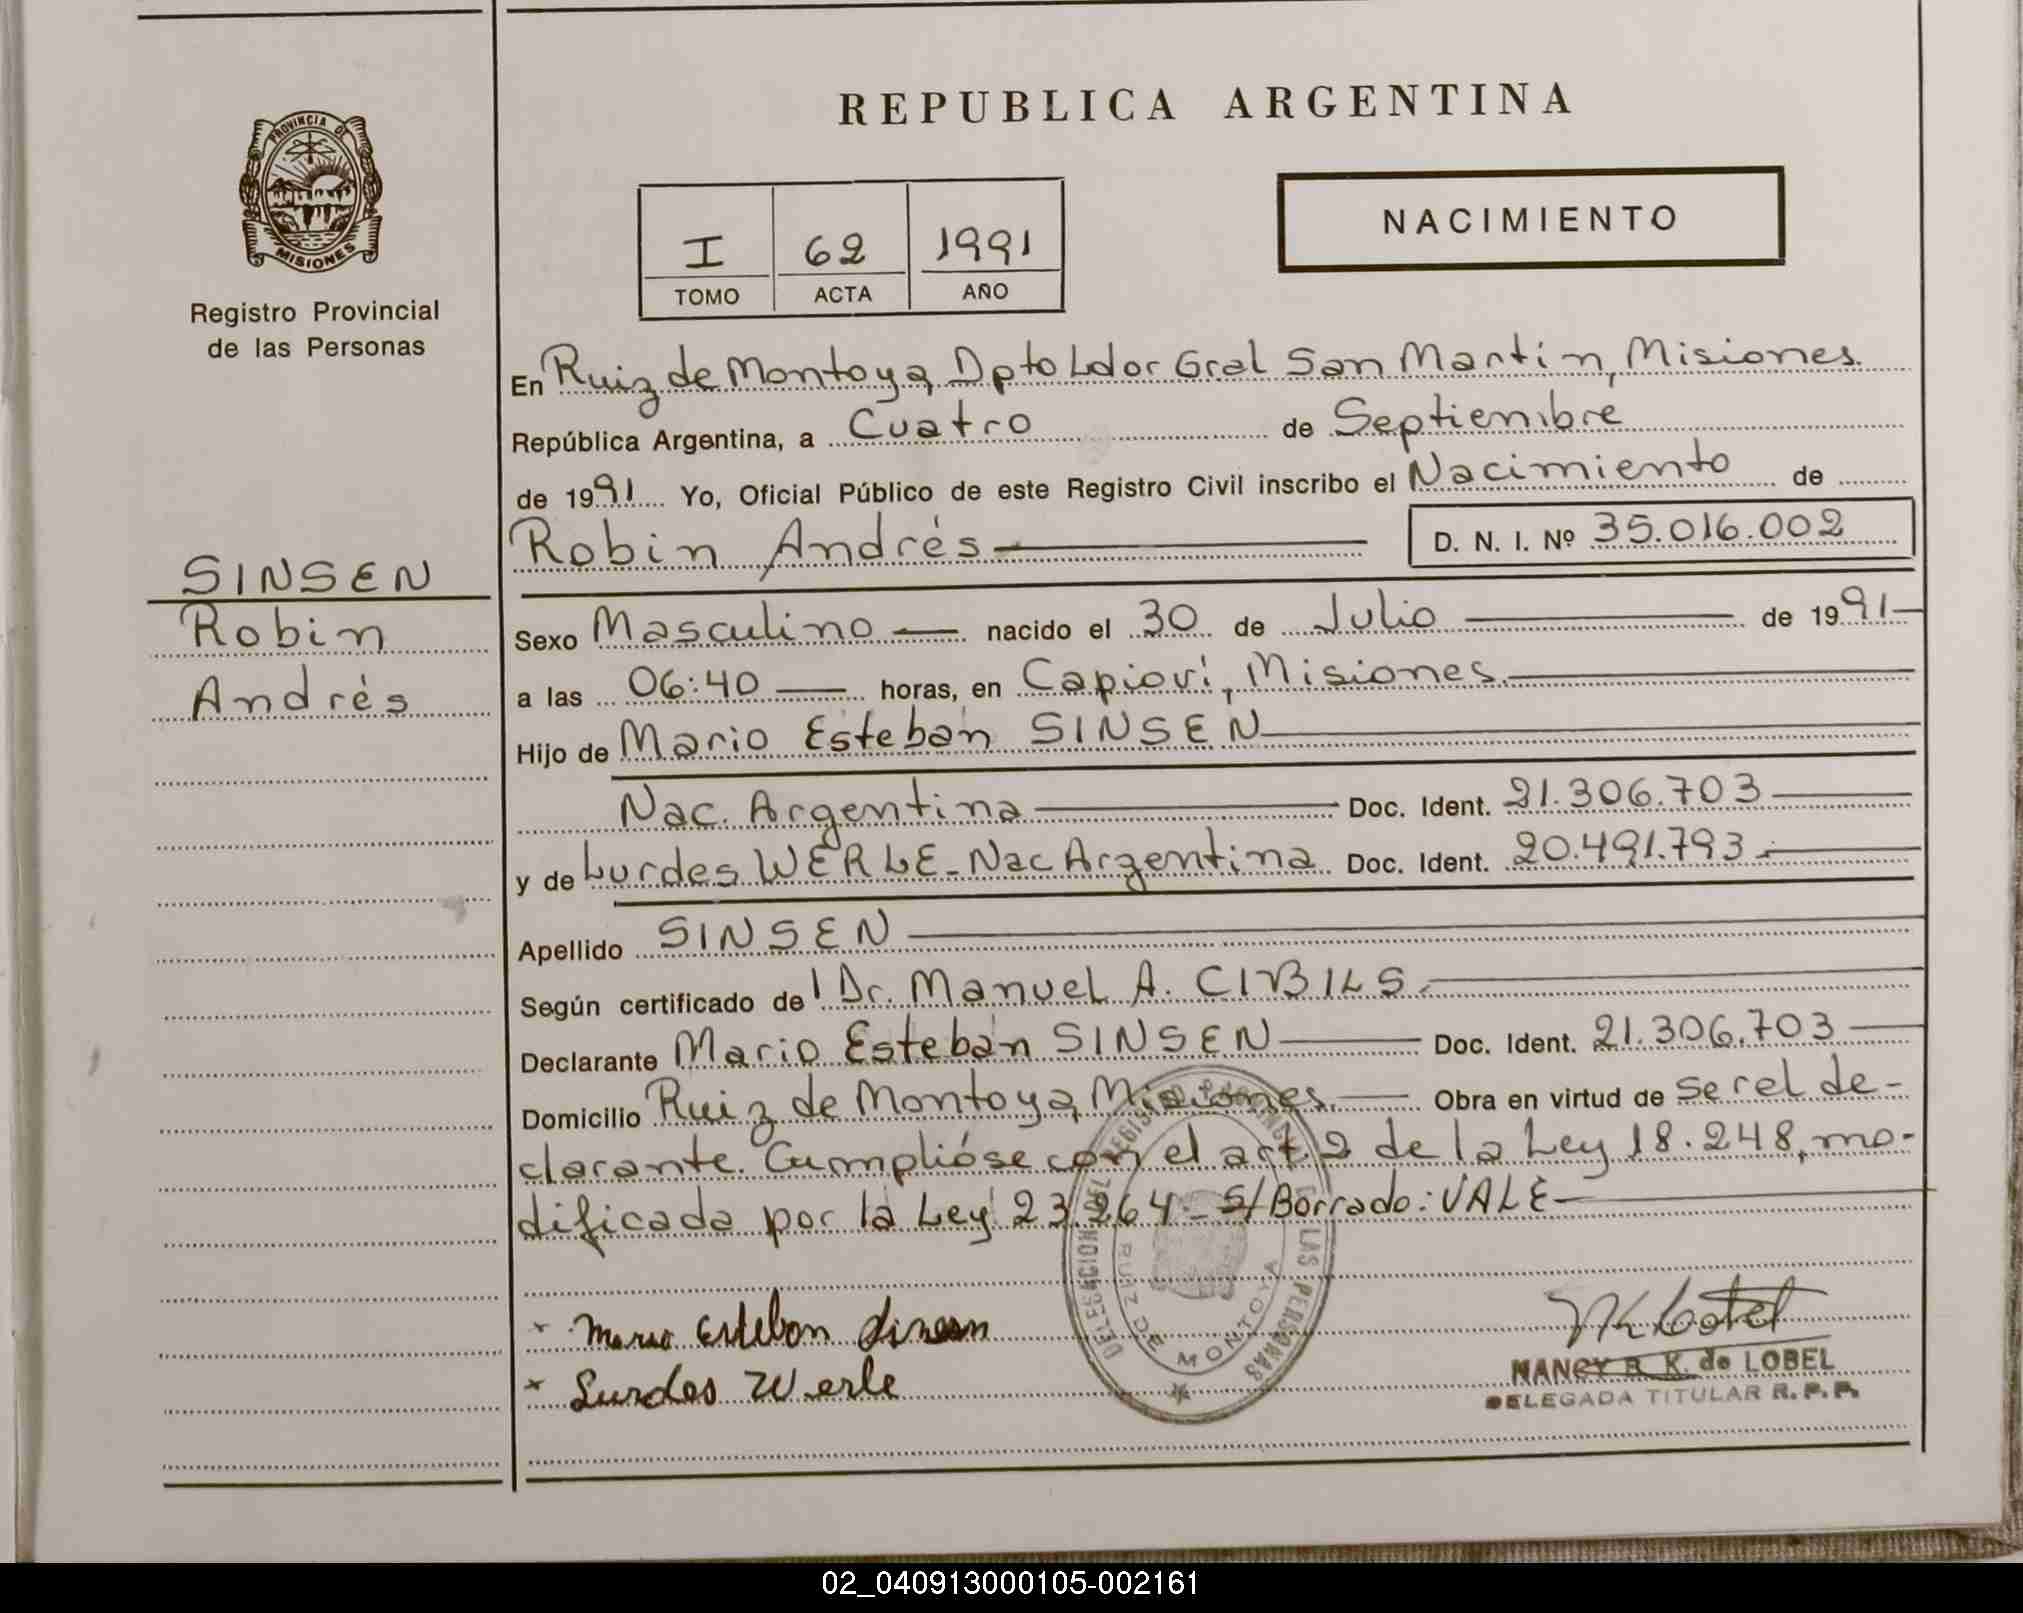 REPUBLICA ARGENTINA
PROVINCIA DE
MISIONES
Registro Provincial
de las Personas
NACIMIENTO
I 62 1991
TOMO ACTA AÑO
En Ruiz de Montoya, Dpto Ldor Gral San Martín, Misiones.
República Argentina, a Cuatro de Septiembre
de 1991 Yo, Oficial Público de este Registro Civil inscribo el Nacimiento de
Robin Andrés D. N. I. Nº 35.016.002
SINSEN
Robin
Andrés
Sexo Masculino nacido el 30 de Julio de 1991
a las 06:40 horas, en Capioví, Misiones.
Hijo de Mario Esteban SINSEN
Nac. Argentina Doc. Ident. 21.306.703
y de Lurdes WERLE - Nac Argentina Doc. Ident. 20.491.793.
Apellido SINSEN
Según certificado de l Dr. Manuel A. CIBILS.
Declarante Mario Esteban SINSEN Doc. Ident. 21.306.703
Domicilio Ruiz de Montoya, Misiones. Obra en virtud de ser el de-
clarante. Cumplióse con el art 2 de la Ley 18.248, mo-
dificada por la Ley 23.264 - S/Borrado: VALE
x Mario Esteban Sinsen
x Lurdes Werle
DELEGACION DEL REGISTRO PROVINCIAL DE LAS PERSONAS
RUIZ DE MONTOYA
NANCY R. K. de LOBEL
DELEGADA TITULAR R. P. P.
02_040913000105-002161